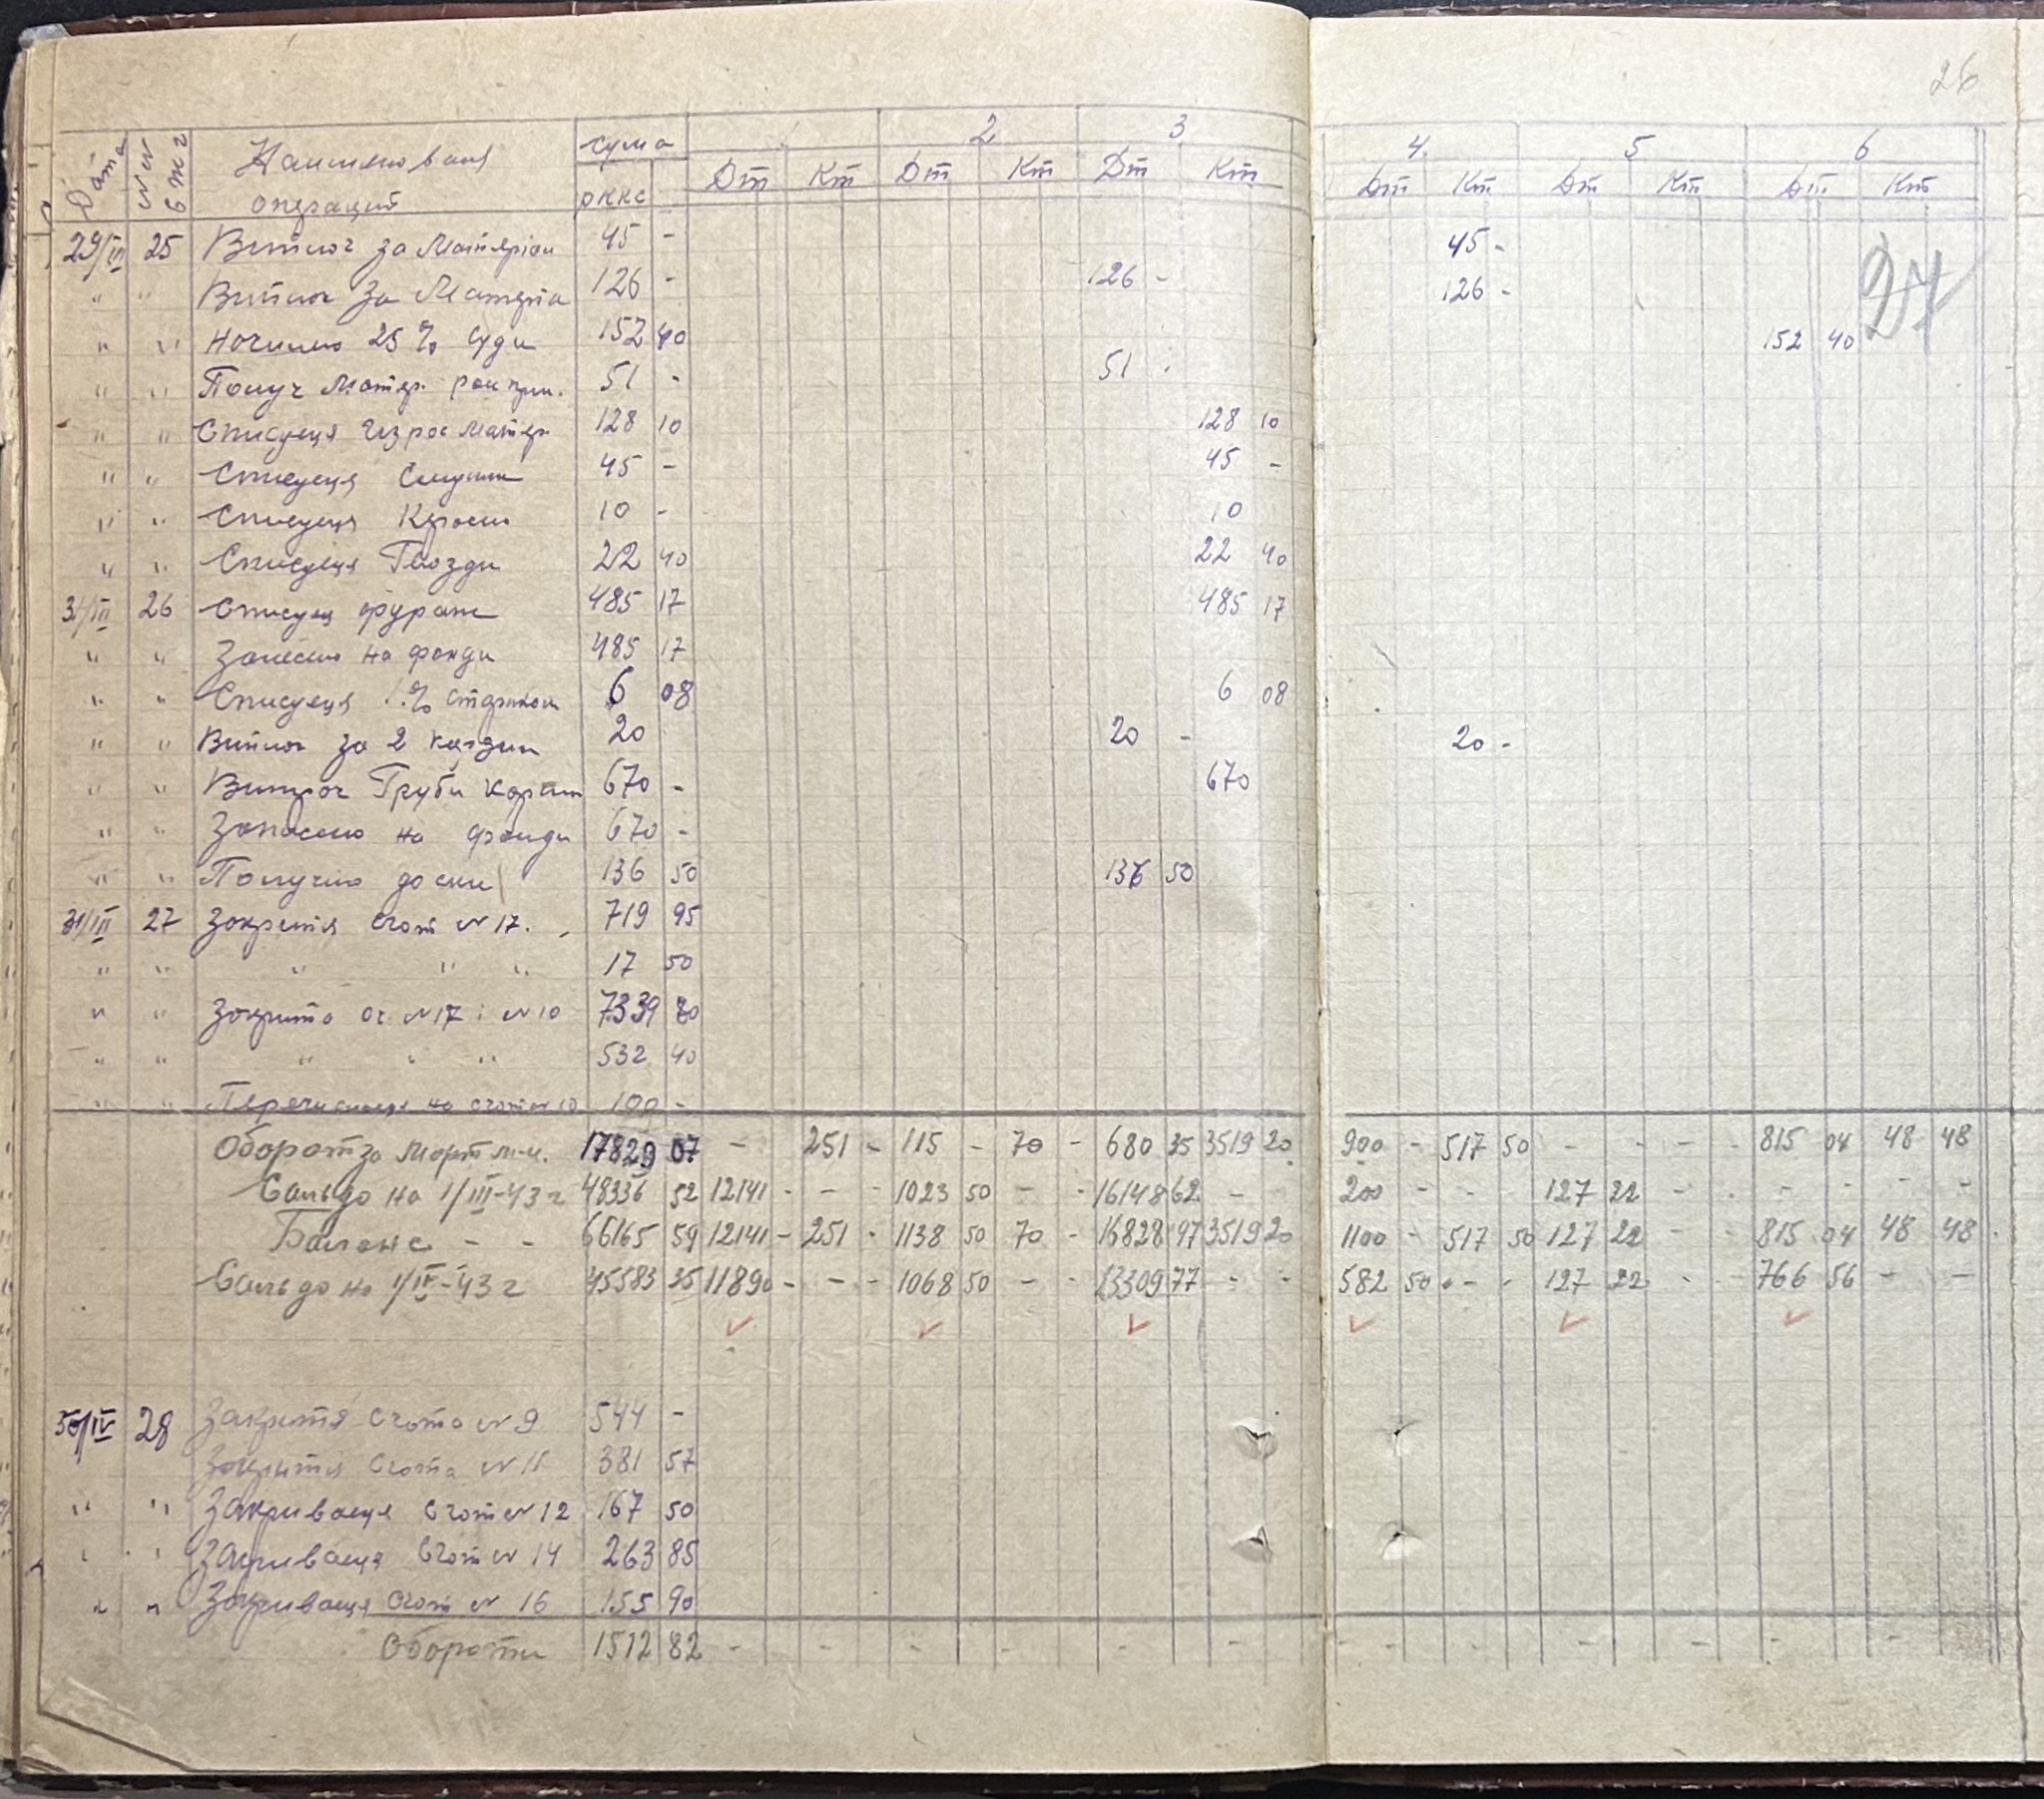 26
Дата №№ Наименованя сума 1 2 3 4. 5 6
операций рккс Дт Кт Дт Кт Дт Кт Дт Кт Дт Кт Дт Кт
27
29/III 25 за Матеріали 45 - 45 -
" " за Матеріа 126 - 126 - 126 -
" " 25% 152 40 152 40
" " Получ Матер. 51 - 51 -
" " Списуеця Матер. 128 10 128 10
" " Списуеця 45 - 45 -
" " Списуеця Керосин 10 - 10
" " Списуеця Гвозди 22 40 22 40
31/III 26 Списуец фураж 485 17 485 17
" " Занесено на фонди 485 17
" " Списуеця 1% 6 08 6 08
" " за 2 20 20 - 20 -
" " Труби 670 - 670
" " Занесено на фонди 670 -
" " Получено доски 136 50 136 50
31/III 27 Закритя счот №17. 719 95
" " " " " 17 50
" " Закрито сч №17 і №10 7339 80
" " " " " 532 40
" " на счот №10 100 -
Оборот за Март м-ц. 17829 07 - 251 - 115 - 70 - 680 35 3519 20 900 - 517 50 - - - - 815 04 48 48
Сальдо на 1/III-43 г 48336 52 12141 - - - 1023 50 - - 16148 62 - - 200 - - - 127 22 - - - - - -
Баланс - - 66165 59 12141 - 251 - 1138 50 70 - 16828 97 3519 20 1100 - 517 50 127 22 - - 815 04 48 48
Сальдо на 1/IV-43 г 45583 35 11890 - - - 1068 50 - - 13309 77 - - 582 50 - - 127 22 - - 766 56 - -
30/IV 28 Закритя Счота №9 544 -
Закритя Счота № 11 381 57
" " Закриваеця Счот №12 167 50
" " Закриваеця Счот № 14 263 85
" " Закриваеця Счот № 16 155 90
Обороти 1512 82 - - - - - - - - - - - - - - - -